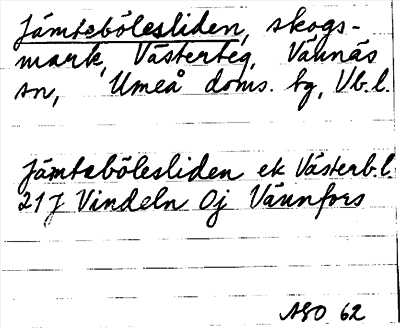 Jämtebölesliden, skogs-
mark, Västerteg, Vännäs
sn, Umeå doms. tg, Vb.l.
Jämtebölesliden ek Västerb.l.
21J Vindeln 0j Vännfors
ASO 62